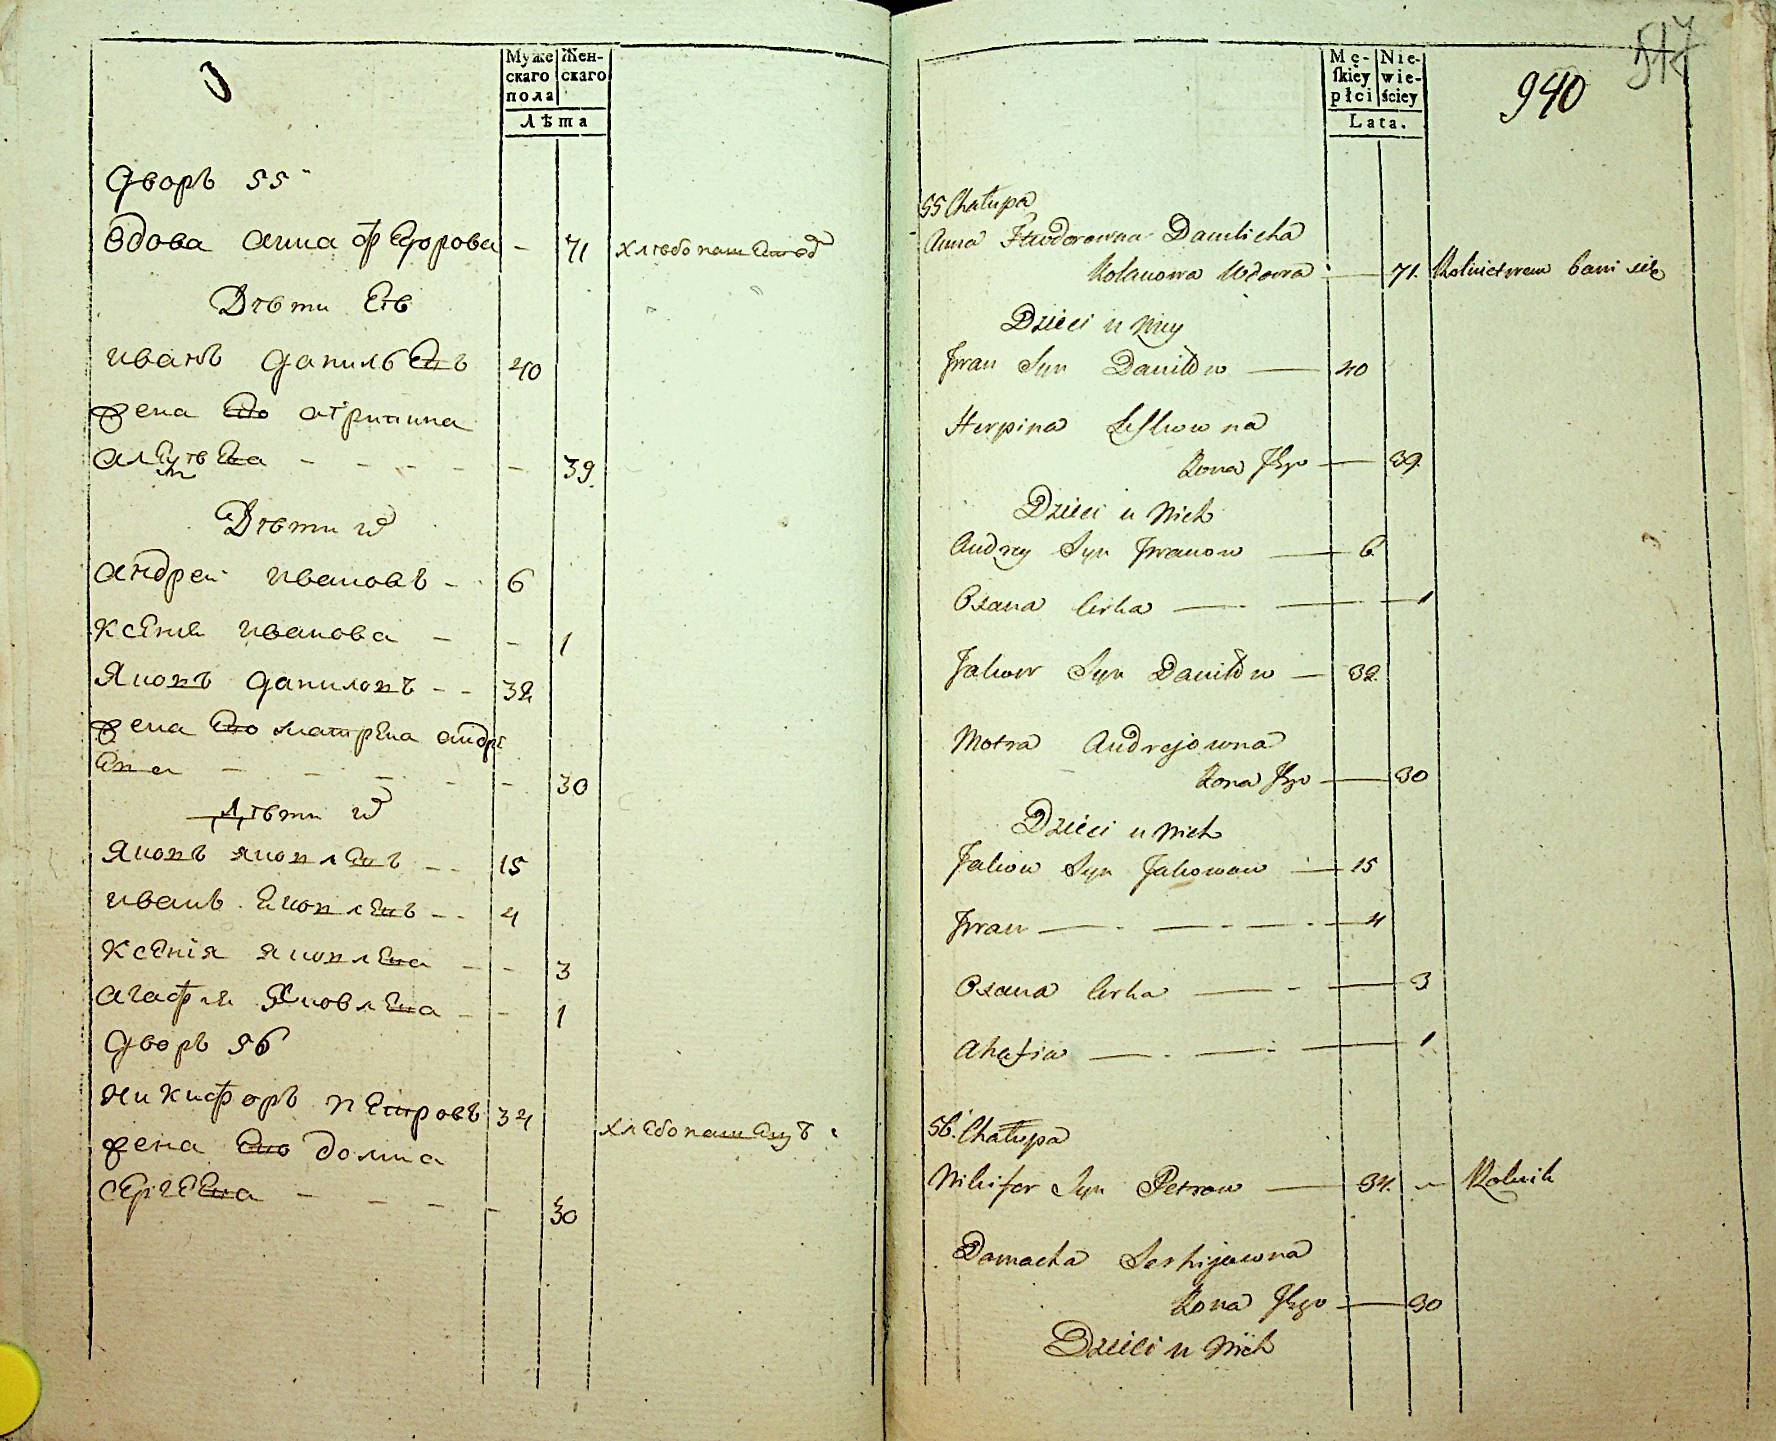 Муже
скаго
пола
Жен-
скаго
Лѣта
дворъ 55
вдова анна федорова - 71 хлебопашец
Дѣти Её
иванъ данильевъ 40
жена ево агрипина
алексѣева - - - - - 39.
Дѣти их
андреи ивановъ - 6
ксения иванова - - 1
Яковъ даниловъ - - 32
жена ево матрена андре
ева - - - - - 30
Дѣти их
Яковъ яковлевъ - - 15
иванъ яковлевъ - - 4
ксенія яковлева - - 3
агафия Яковлева - - 1
дворъ 56
никифоръ петровъ 34 хлебопашецъ
жена ево домна
сергеева - - - - 30
Mę-
skiey
płci
Nie-
wie-
ściey
Lata.
517
940
55 Chałupa
Anna Fedorowna Danilicha
Wdowa 71. Rolnictwem bawi się
Dzieci u Niey
Jwan Syn Daniłow 40
Herpina
Żona Jego 39.
Dzieci u Nich
Andrey Syn Jwanow 6
Oxana Corka 1
Jakow Syn Daniłow 32
Motra Andrejowna
Żona Jego 30
Dzieci u Nich
Jakow Syn Jakowow 15
Jwan 4
Oxana Corka 3
Ahafia 1
56. Chałupa
Nikifor Syn Petrow 34. Rolnik
Domacha Serhijowna
Żona Jego 30
Dzieci u Nich